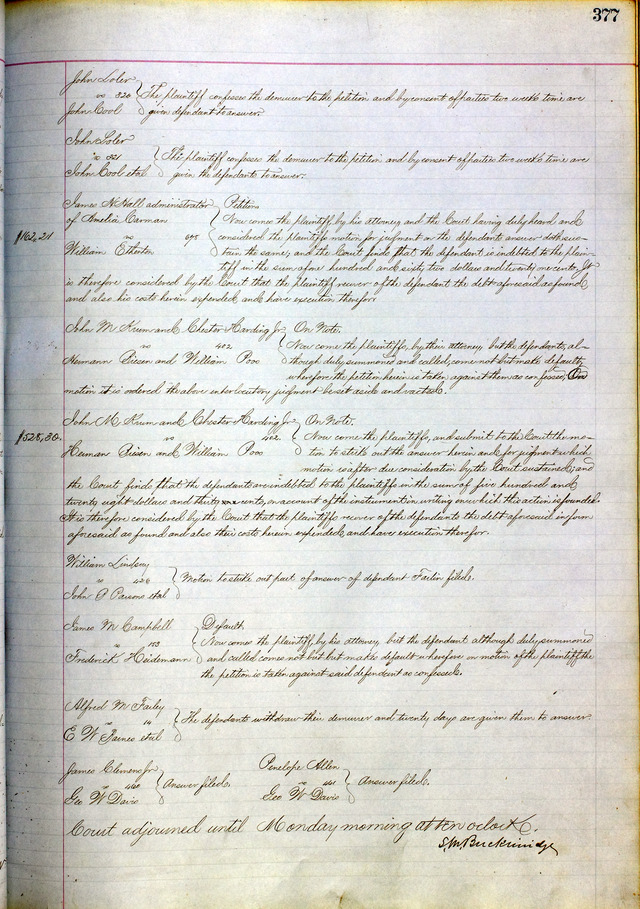 377
John Loler
vs 320 The plaintiff confesses the demurrer to the petition and by consent of parties two weeks time are
John Cool given defendant to answer.
John Loler
vs 321 The plaintiff confesses the demurrer to the petition and by consent of parties two weeks time are
John Cool et al given the defendants to answer.
James N Nall administrator Petition
of Amelia Carman Now comes the plaintiff by his attorney and the Court having duly heard and
$162,21 vs considered the plaintiffs motion for judgment on the defendants answer doth sus-
William Etherton tain the same; and the Court finds that the defendant is indebted to the plain-
tiff in the sum of one hundred and sixty two dollars and twenty one cents, It
is therefore considered by the Court that the plaintiff recover of the defendant the debt aforesaid as found
and also his costs herein expended, and have execution therefor.
John M Krum and Chester Harding Jr On Note.
vs 402 Now come the plaintiffs, by their attorney, but the defendants, al-
Hermann Biesen and William Poo though duly summoned and called, come not but make default,
wherefore the petition herein is taken against them as confessed, On
motion it is ordered the above interlocutory judgment be set aside and
John M. Krum and Chester Harding Jr On Note.
$528,30. vs 402. Now come the plaintiffs, and submit to the Court the mo-
Herman Biesen and William Poo tion to strike out the answer herein and for judgment which
motion is after due consideration by the Court sustained, and
the Court finds that the defendants are indebted to the plaintiffs in the sum of five hundred and
twenty eight dollars and thirty cents, on account of the instrument in writing on which this action is founded
It is therefore considered by the Court that the plaintiffs recover of the defendants the debt aforesaid in form
aforesaid as found and also their costs herein expended, and have execution therefor.
William Lindsay
vs 426 Motion to strike out part of answer of defendant filed.
John P Parsons et al
James M Campbell Default
vs 153 Now comes the plaintiff by his attorney but the defendant although duly summoned
Frederick Heidemann and called comes not but but makes default wherefore on motion of the plaintiff the
the petition is taken against said defendant as confessed.
Alfred M Farley
vs 14 The defendants withdraw their demurrer and twenty days are given them to answer.
E W James et al
James Clemens Jr
vs 460 Answer filed.
Geo W Davis
Penelope Allen
vs 461 Answer filed.
Geo W Davis
Court adjourned until Monday morning at ten oclock.
S. M. Breckinridge